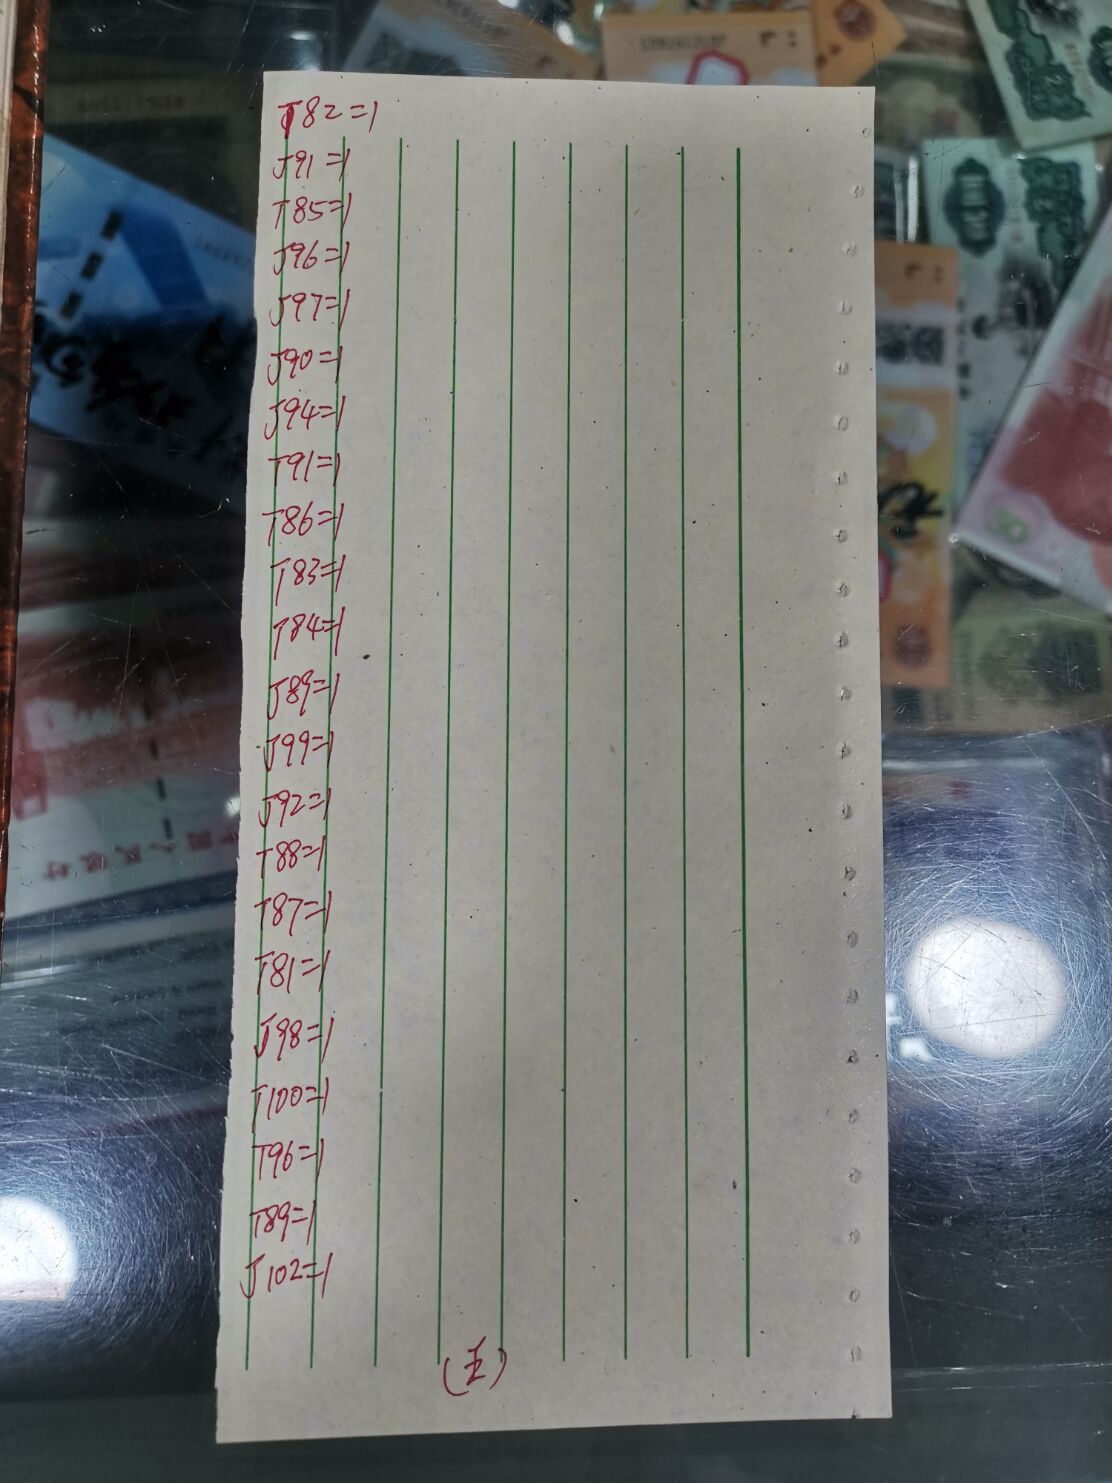 T82=1
J91=1
T85=1
J96=1
J97=1
J90=1
J94=1
T91=1
T86=1
T83=1
T84=1
J89=1
J99=1
J92=1
T88=1
T87=1
T81=1
J98=1
T100=1
T96=1
T89=1
J102=1
(五)